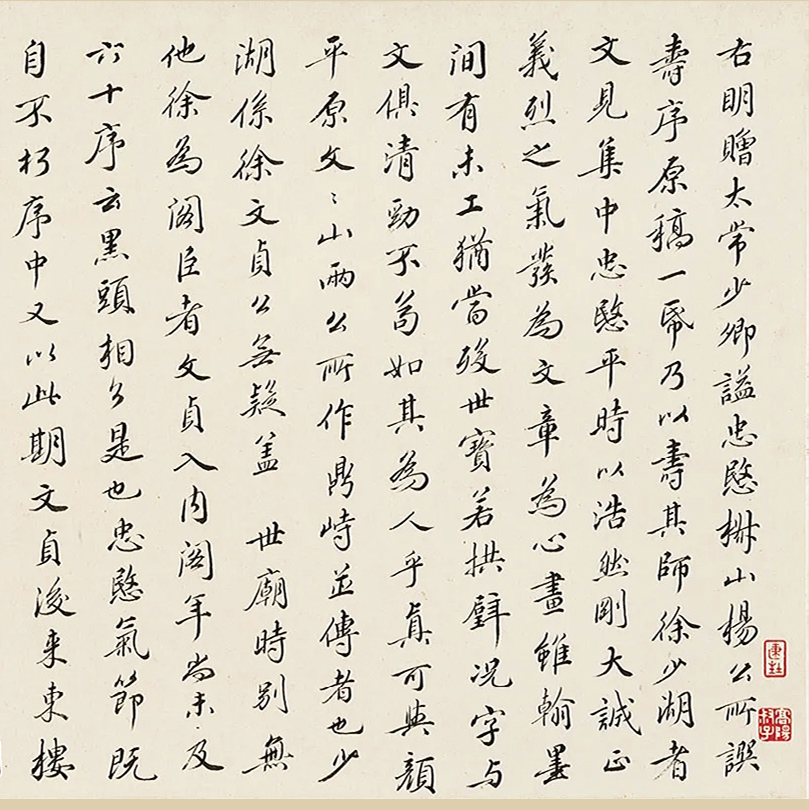 右明贈太常少卿謚忠愍椒山楊公所譔
壽序原稿一帋乃以壽其師徐少湖者
文見集中忠愍平時以浩然剛大誠正
義烈之氣發為文章為心畫雖翰墨
間有未工猶當後世寶若拱璧況字与
文俱清勁不茍如其為人乎真可與顏
平原文〻山兩公所作鼎峙並傳者也少
湖係徐文貞公無疑蓋 世廟時別無
他徐為閣臣者文貞入內閣年尚未及
六十序云黑頭相公是也忠愍氣節既
自不朽序中又以此期文貞後来東樓